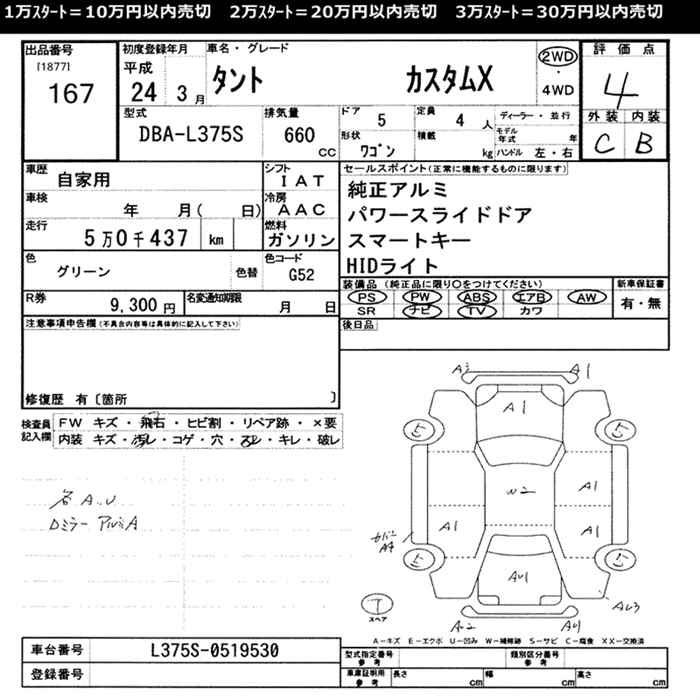 1万ｽﾀｰﾄ＝10万円以内売切　2万ｽﾀｰﾄ＝20万円以内売切　3万ｽﾀｰﾄ＝30万円以内売切
出品番号 初度登録年月 車名・グレード 評価点
[1877] 平成 タント カスタムX 2WD ・ 4WD 4
167 24 年 3 月
型式 排気量 ドア 5 定員 4 人 ディーラー・並行 外装 内装
DBA-L375S 660 cc 形状 ワゴン 積載 kg モデル年式 年 ハンドル 左・右 C B
車歴 自家用 シフト IAT セールスポイント(正常に機能するものに限ります)
車検 年 月( 日) 冷房 AAC 純正アルミ
走行 5万0千437 km 燃料 ガソリン パワースライドドア
スマートキー
色 グリーン 色替 色コード G52 HIDライト
R券 9,300円 名変通知期限 月 日 装備品 (純正品に限り○をつけてください) 新車保証書
PS PW ABS エアB AW 有・無
SR ナビ TV カワ
注意事項申告欄(不具合内容等は具体的に記入して下さい) 後日品
修復歴 有〔箇所 〕
検査員記入欄 FW キズ・飛石・ヒビ割・リペア跡・×要
内装 キズ・汚レ・コゲ・穴・スレ・キレ・破レ
A1
A1
5 5
W2 A1
A1 A1
5 5
AU1
スペア
A－キズ E－エクボ U－凹み W－補修跡 S－サビ C－腐食 XX－交換済
車台番号 L375S-0519530 型式指定番号 参考 類別区分番号 参考
登録番号 車庫証明用 参考 長さ cm 幅 cm 高さ cm